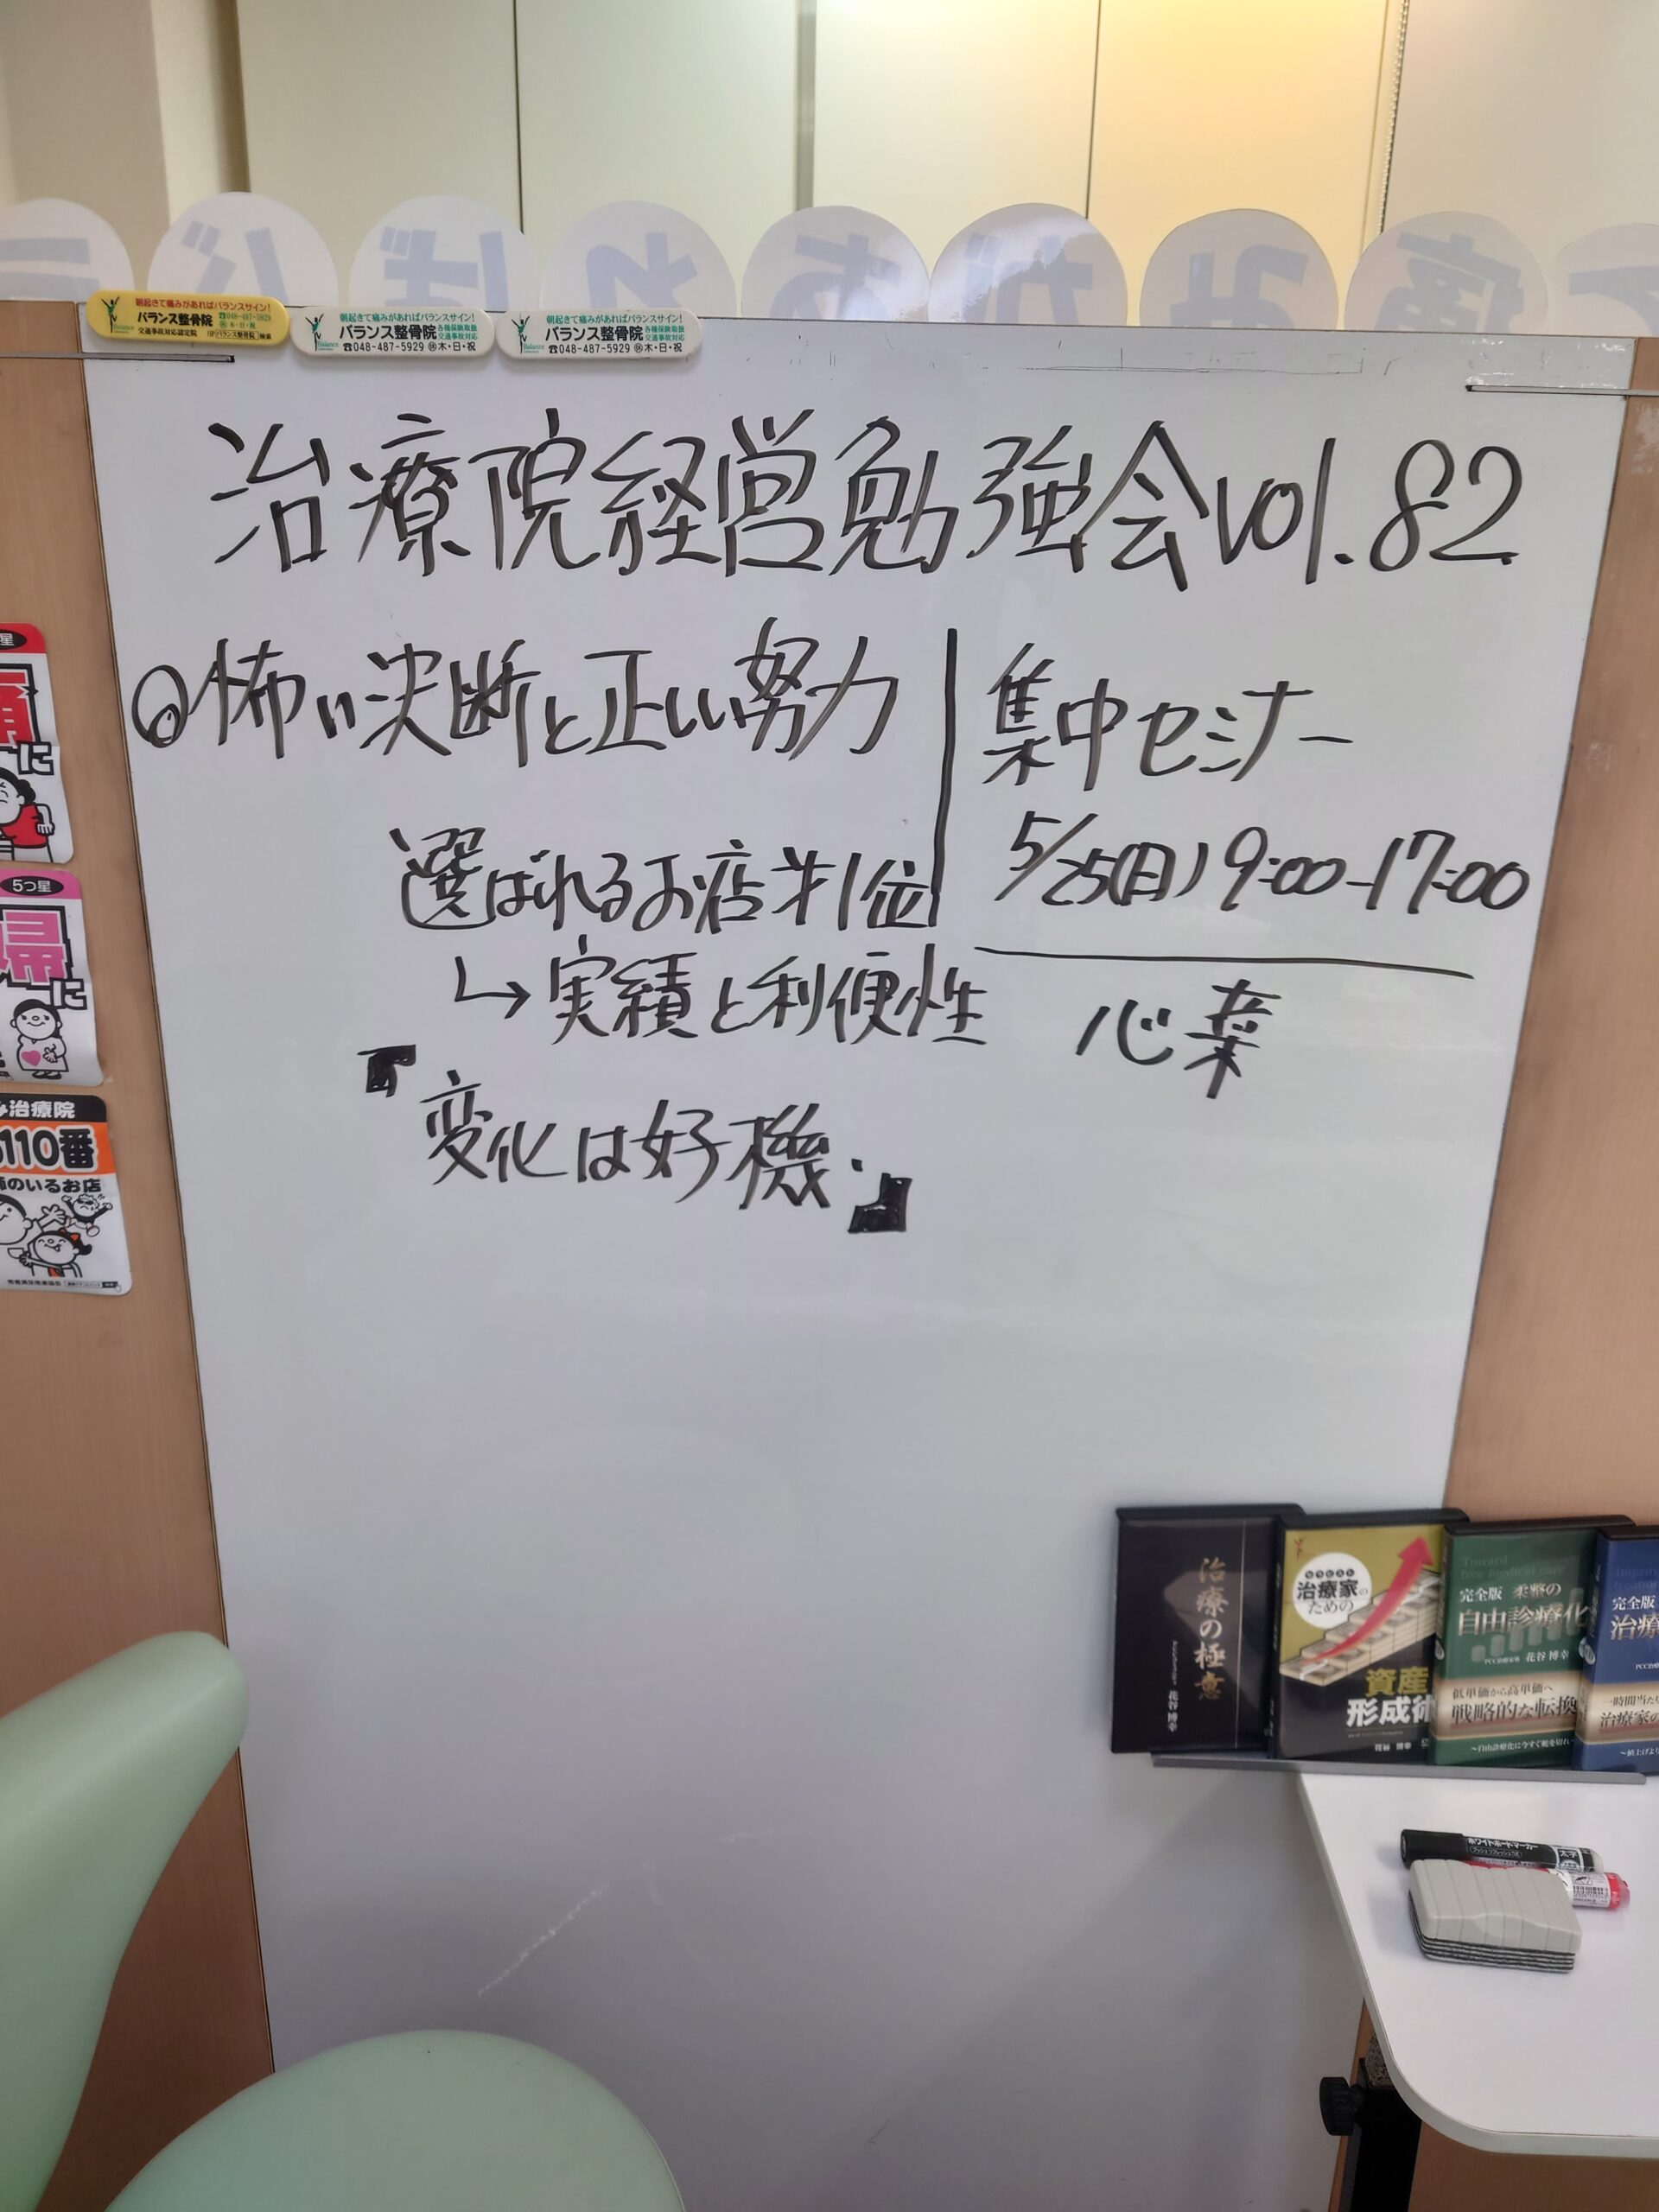 朝起きて痛みがあればバランスサイン!
バランス整骨院
☎048-487-5929
㊡木・日・祝
交通事故対応認定院
朝起きて痛みがあればバランスサイン!
バランス整骨院 各種保険取扱 交通事故対応
Balance
☎048-487-5929 ㊡木・日・祝
朝起きて痛みがあればバランスサイン!
バランス整骨院 各種保険取扱 交通事故対応
Balance
☎048-487-5929 ㊡木・日・祝
治療院経営勉強会vol.82
◎怖い決断と正しい努力
選ばれるお店才1位
↳実績と利便性
『変化は好機.』
集中セミナー
5/25(日) 9:00-17:00
心菜
星
に
5つ星
帰
に
治療院
110番
師のいるお店
治療の極意
花谷 博幸
治療家の
ための
資産
形成術
Toward
free medical care
完全版 柔整の
自由診療化
花谷 博幸
低単価から高単価へ
戦略的な転換
～自由診療化に今すぐ舵を切れ～
完全版
治療
一時間当た
治療家の
ホワイトボードマーカー
太字